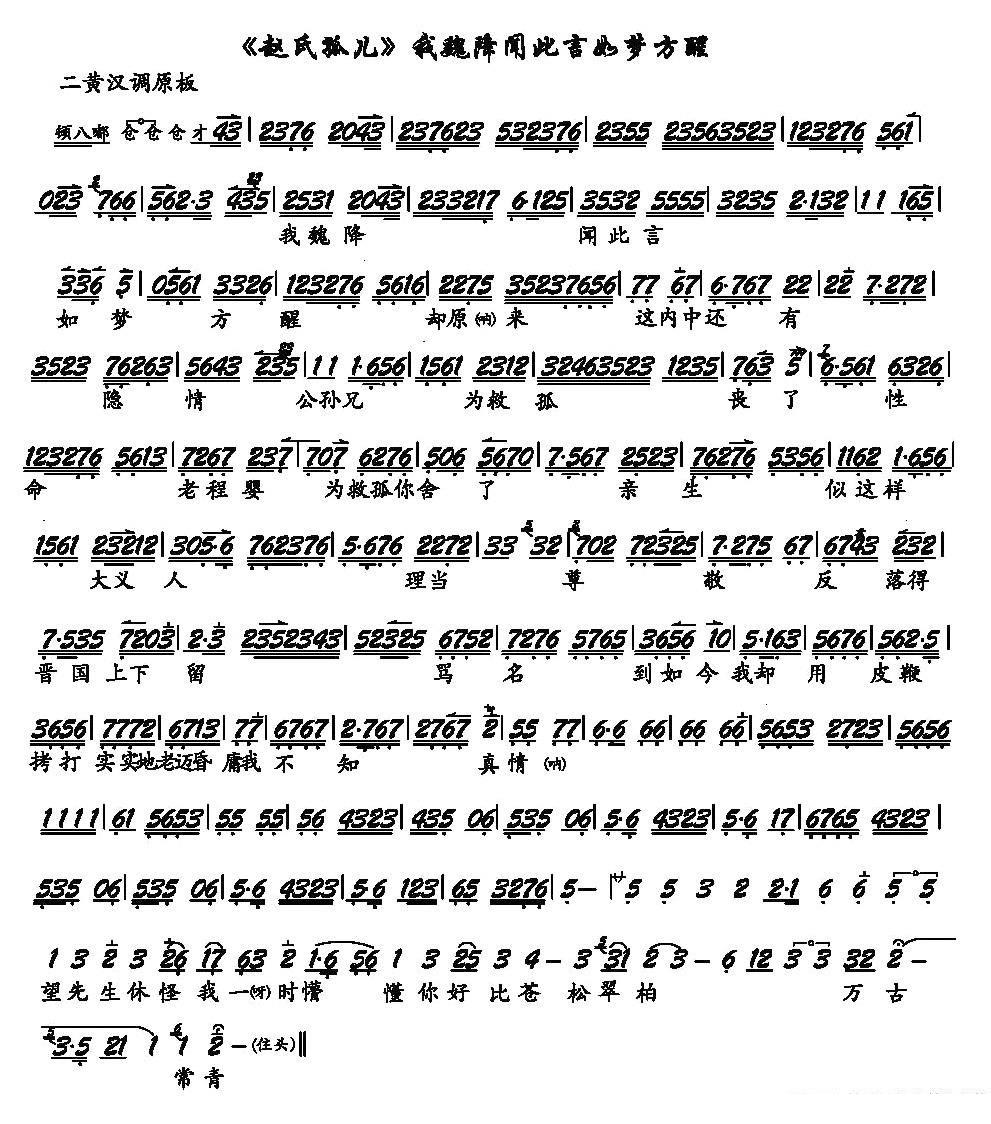 《赵氏孤儿》我魏降闻此言如梦方醒
二黄汉调原板
顿八嘟 仓仓仓才 43 | 2376 2043 | 237623 532376 | 2355 23563523 | 123276 561 |
023 766 | 562·3 435 | 2531 2043 | 233217 6·125 | 3532 5555 | 3235 2·132 | 11 165 |
我魏降 闻此言
336 5 | 0561 3326 | 123276 5616 | 2275 35237656 | 77 67 | 6·767 22 | 22 7·272 |
如梦 方醒 却原(呐)来 这内中还有
3523 76263 | 5643 235 | 11 1·656 | 1561 2312 | 32463523 1235 | 763 5 | 6·561 6326 |
隐情 公孙兄 为救孤 丧了性
123276 5613 | 7267 237 | 707 6276 | 506 5670 | 7·567 2523 | 76276 5356 | 1162 1·656 |
命 老程婴 为救孤你舍了 亲生 似这样
1561 23212 | 305·6 762376 | 5·676 2272 | 33 32 | 702 72325 | 7·275 67 | 6743 232 |
大义人 理当 尊敬 反落得
7·535 7203 | 2·3 2352343 | 52325 6752 | 7276 5765 | 3656 10 | 5·163 | 5676 | 562·5 |
晋国上下留 骂名 到如今我却用皮鞭
3656 | 7772 | 6713 | 77 | 6767 | 2·767 | 2767 2 | 55 77 | 6·6 66 | 66 66 | 5653 2723 | 5656
拷打实实地老迈昏庸我不知 真情(呐)
1111 | 61 5653 | 55 55 | 56 4323 | 435 06 | 535 06 | 5·6 4323 | 5·6 17 | 6765 4323 |
535 06 | 535 06 | 5·6 4323 | 5·6 123 | 65 3276 | 5– | 5 5 3 2 2·1 6 6 5 5
1 3 2 3 26 17 63 2 1·6 56 1 3 25 3 4– 3 31 2 3– 6 12 3 3 32 2–
望先生休怪我一(呀)时懵懂你好比苍松翠柏 万古
3·5 21 1 1 2–(住头)‖
常青